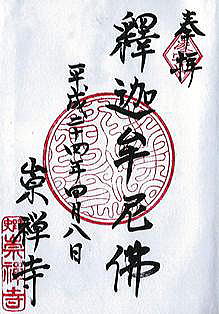 奉拝
釋迦牟尼佛
平成二十四年四月八日
崇禅寺
崇禅寺